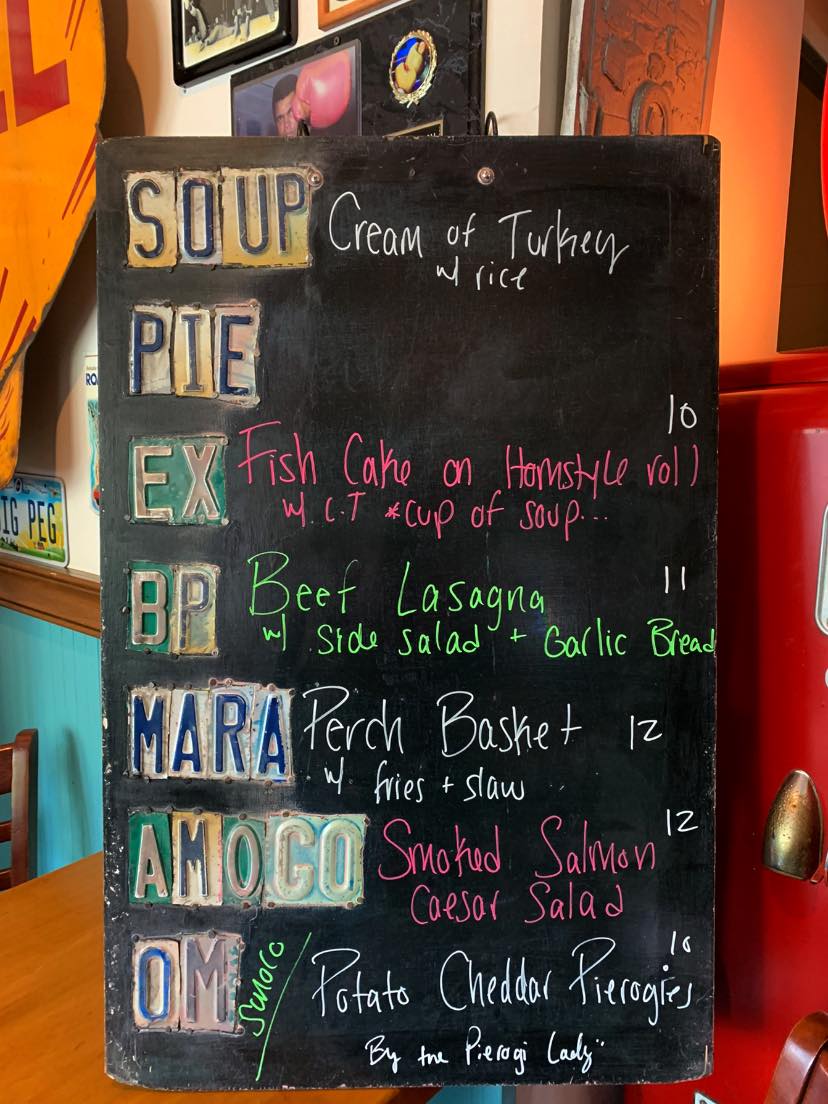 SOUP Cream of Turkey
w/ rice
PIE
10
EX Fish Cake on Homstyle roll
w/ C.T *cup of soup...
BP Beef Lasagna 11
w/ side salad + Garlic Bread
MARA Perch Basket 12
w/ fries + slaw
AMOCO Smoked Salmon 12
Caesar Salad
OM Sunoco / Potato Cheddar Pierogies 10
By the Pierogi Lady"
IG PEG